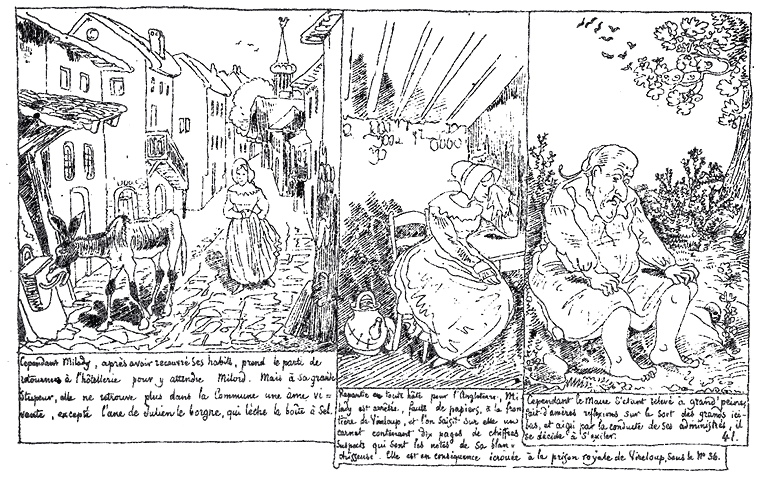 Cependant Milady, après avoir recouvré ses habits, prend le parti de
retourner à l'hôtellerie pour y attendre Milord. Mais à sa grande
Stupeur, elle ne retrouve plus dans la Commune une âme vi=
vante, excepté l'ane de Julien le borgne, qui lèche la boîte à Sel.
Repartie en toute hâte pour l'Angleterre, Mi
lady est arrêtée, faute de papiers, à la fron
tière de Vireloup, et l'on Saisit sur elle un
carnet contenant dix pages de chiffres
Suspects qui sont les notes de sa blan
chisseuse. Elle est en conséquence écrouée à la prison royale de Vireloup, Sous le N° 36.
Cependant le Maire s'étant relevé à grand'peine,
fait d'amères réflexions sur le sort des grands ici
bas, et aigri par la conduite de ses administrés, il
se décide à S'exiler.
41.